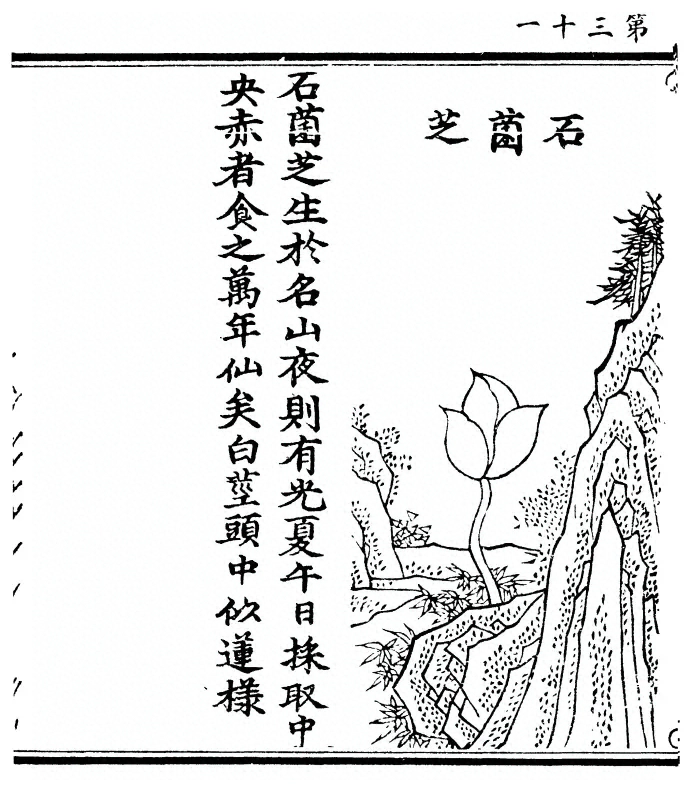 第三十一
石菌芝
石菌芝生於名山夜則有光夏午日採取中
央赤者食之萬年仙矣白莖頭中似蓮樣